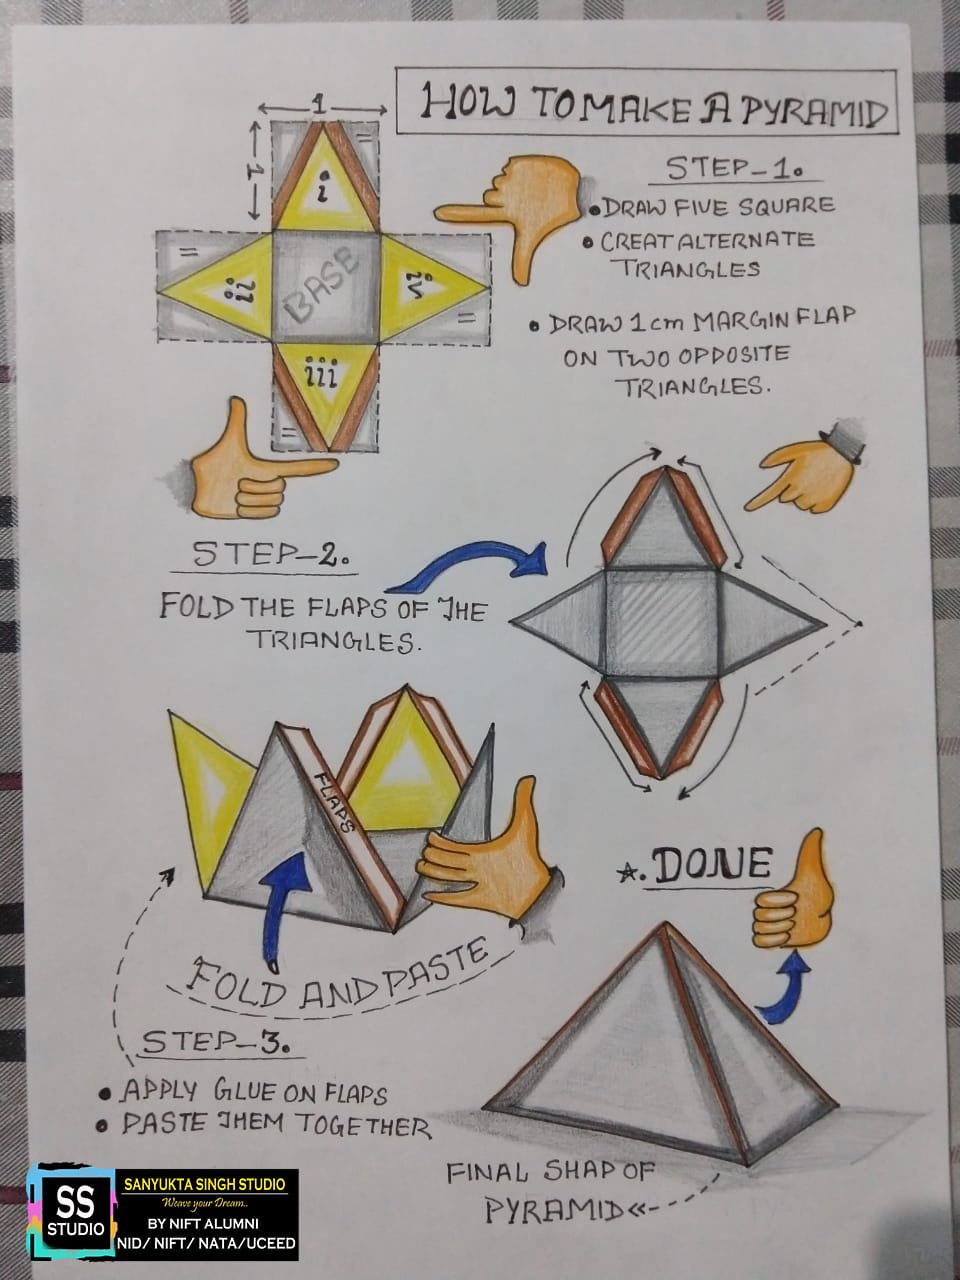 HOW TO MAKE A PYRAMID
1
1
i
ii
BASE
iv
iii
STEP-1.
• DRAW FIVE SQUARE
• CREAT ALTERNATE
TRIANGLES
• DRAW 1cm MARGIN FLAP
ON TWO OPPOSITE
TRIANGLES.
STEP-2.
FOLD THE FLAPS OF THE
TRIANGLES.
FLAPS
FOLD AND PASTE
STEP-3.
• APPLY GLUE ON FLAPS
• PASTE THEM TOGETHER
☆. DONE
FINAL SHAP OF
PYRAMID
SS
STUDIO
SANYUKTA SINGH STUDIO
Weave your Dream..
BY NIFT ALUMNI
NID/ NIFT/ NATA/UCEED